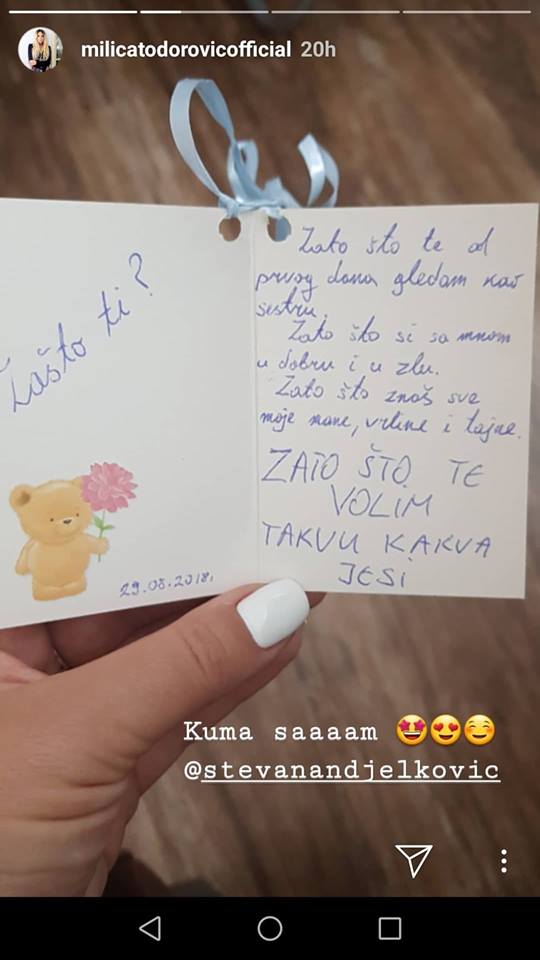 milicatodorovicofficial 20h
Zašto ti?
Zato što te od
prvog dana gledam kao
sestru.
Zato što si sa mnom
u dobru i u zlu.
Zato što znaš sve
moje mane, vrline i tajne.
ZATO ŠTO TE
VOLIM
TAKVU KAKVA
JESI
29.08.2018.
Kuma saaaam 🤩😍☺️
@stevanandjelkovic